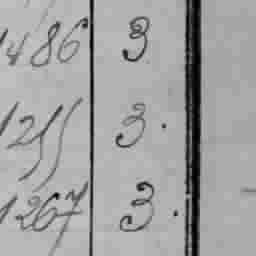 1486 3
1255 3.
1267 3.